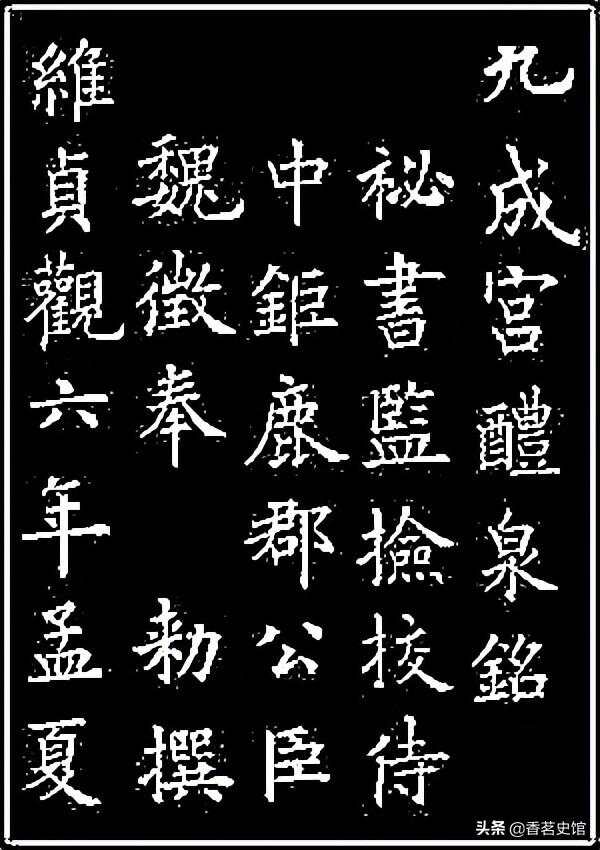 九成宮醴泉銘
祕書監撿挍侍
中鉅鹿郡公臣
魏徵奉勑撰
維貞觀六年孟夏
头条 @香茗史馆